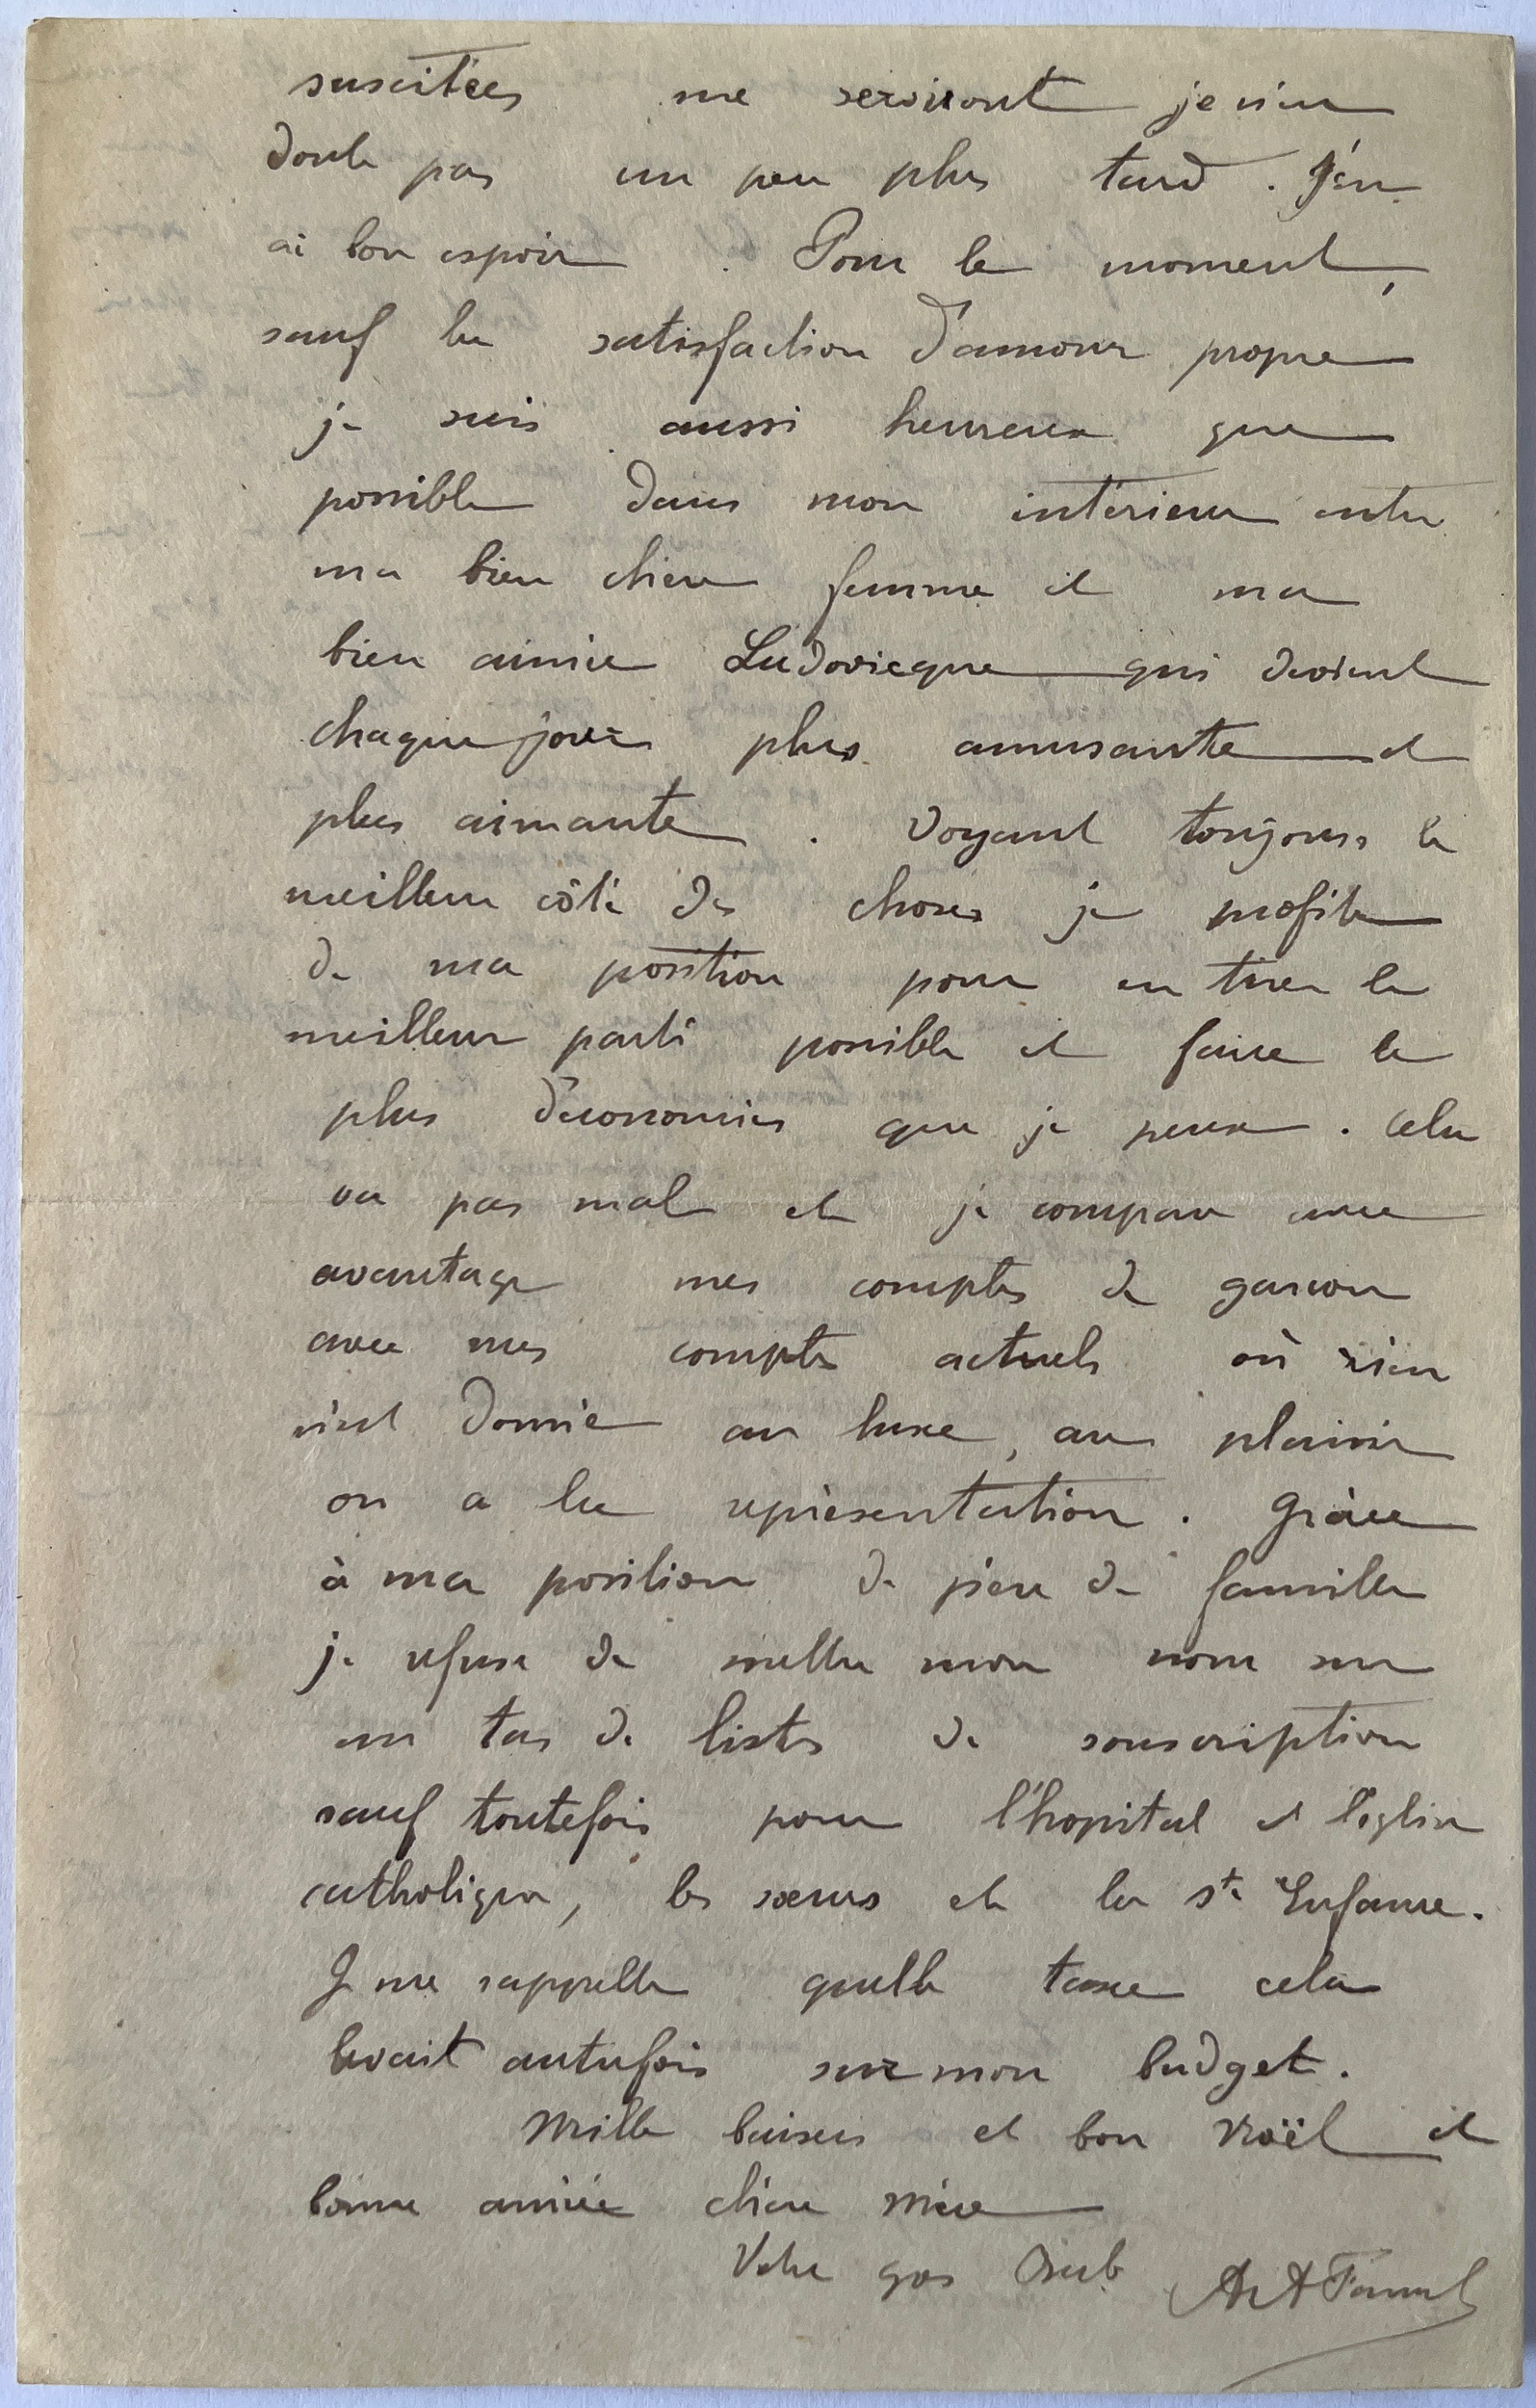 suscitées me serviront je n'en
doute pas un peu plus tard. J'en
ai bon espoir. Pour le moment,
sauf la satisfaction d'amour propre
je suis aussi heureux que
possible dans mon intérieur entre
ma bien chère femme et ma
bien aimée Ludovicque qui devient
chaque jour plus amusante et
plus aimante. Voyant toujours le
meilleur côté des choses je profite
de ma position pour en tirer le
meilleur parti possible et faire le
plus d'économies que je peux. Cela
va pas mal et je compare avec
avantage mes comptes de garçon
avec mes comptes actuels où rien
n'est donné au luxe, au plaisir
ou a la représentation. Grâce
à ma position de père de famille
je refuse de mettre mon nom sur
un tas de listes de souscription
sauf toutefois pour l'hopital et l'église
catholique, les sœurs et la Ste Enfance.
Je me rappelle quelle taxe cela
levait autrefois sur mon budget.
Mille baisers et bon Noël et
bonne année chère Mère
Votre gos